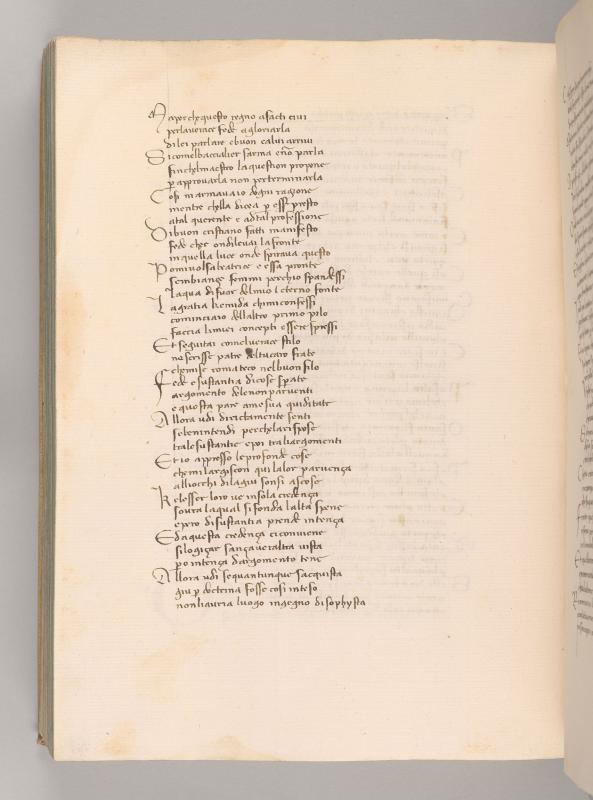 Ma perche questo regno a facti civi
per la verace fede a gloriarla
di lei parlare e buon ca lui arrivi
Si come l baccialier sarma e no parla
fin chel maestro la question propone
p approvarla non per terminarla
Cosi m armava io dogni ragione
mentre chella dicea p esser presto
a tal querente e ad tal professione
Di buon cristiano fatti manifesto
fede che e ondi levai la fronte
in quella luce onde spirava questo
Po mi volsi a beatrice e essa pronte
sembiançe femmi perchio spandessi
laqua di fuor del mio Iterno fonte
La gratia che mi da chi mi confessi
cominciaio dellaltro primo pilo
faccia li miei concepti essere spressi
Et seguitai come l verace stilo
ne scrisse patre del tu caro frate
che mise roma teco nel buon filo
Fede e sustantia di cose sperate
argomento de le non parventi
e questa pare a me sua quiditate
Allora udi directamente senti
se ben intendi perche la rispose
tra le sustantie e poi tra li argomenti
Et io appresso le profonde cose
che mi largiscon qui la lor parvença
alli occhi di la giu son si ascose
Ke lesser loro ve in sola credença
sovra la qual si fonda lalta spene
e pero di sustantia prende intença
E da questa credença ci convene
silogiçar sança veraltra vista
po intença dargomento tene
Allora udi se quantunque sacquista
giu p doctrina fosse cosi inteso
non li avria luogo ingegno di sophysta